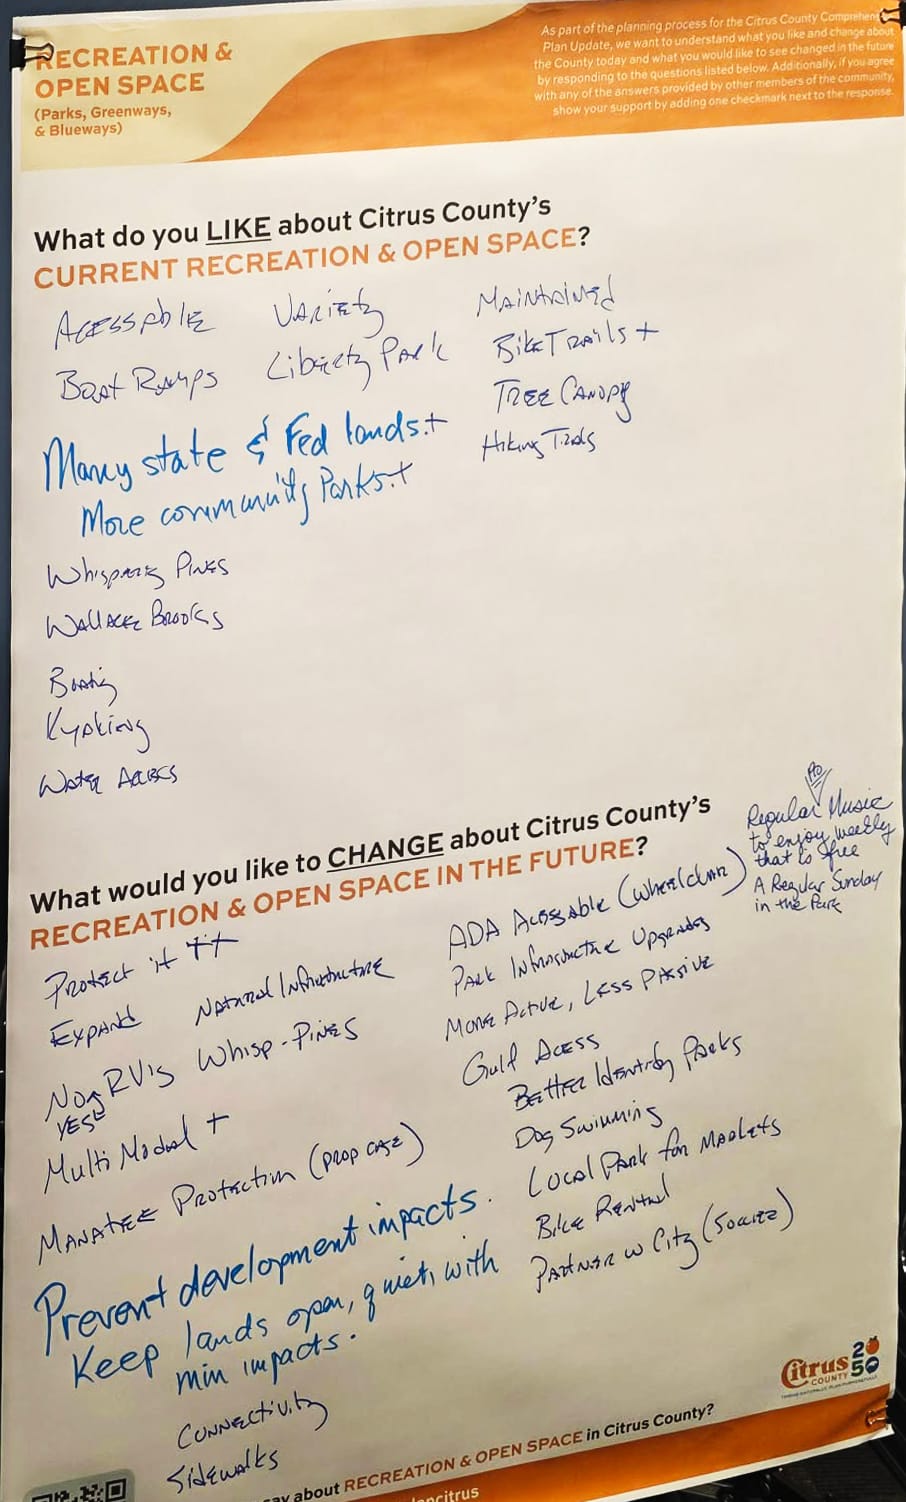 RECREATION &
OPEN SPACE
(Parks, Greenways,
& Blueways)
As part of the planning process for the Citrus County Comprehen
Plan Update, we want to understand what you like and change about
the County today and what you would like to see changed in the future
by responding to the questions listed below. Additionally, if you agree
with any of the answers provided by other members of the community,
show your support by adding one checkmark next to the response.
What do you LIKE about Citrus County's
CURRENT RECREATION & OPEN SPACE?
Acessable
Boat Ramps
Variety
Liberty Park
Maintained
Bike Trails +
Tree Canopy
Hiking Trails
Many state & Fed lands.+
More community Parks.+
Whispering Pines
Wallace Brooks
Boating
Kyaking
Water Access
What would you like to CHANGE about Citrus County's
RECREATION & OPEN SPACE IN THE FUTURE?
Regular Music
to enjoy weekly
that is free
A Regular Sunday
in the Park
Protect it ++
Expand
Natural Infrastructure
No RV's Whisp-Pines
YES
Multi Modal +
Manatee Protection (prop case)
Prevent development impacts.
Keep lands open, quiet, with
min impacts.
Connectivity
Sidewalks
ADA Acessable (wheelchair)
Park Infrastructure Upgrades
More Active, Less Passive
Gulf Acess
Better Identify Parks
Dog Swimming
Local Park for Markets
Bike Rental
Partner w City (Soccer)
Citrus 2050
COUNTY
ay about RECREATION & OPEN SPACE in Citrus County?
ncitrus